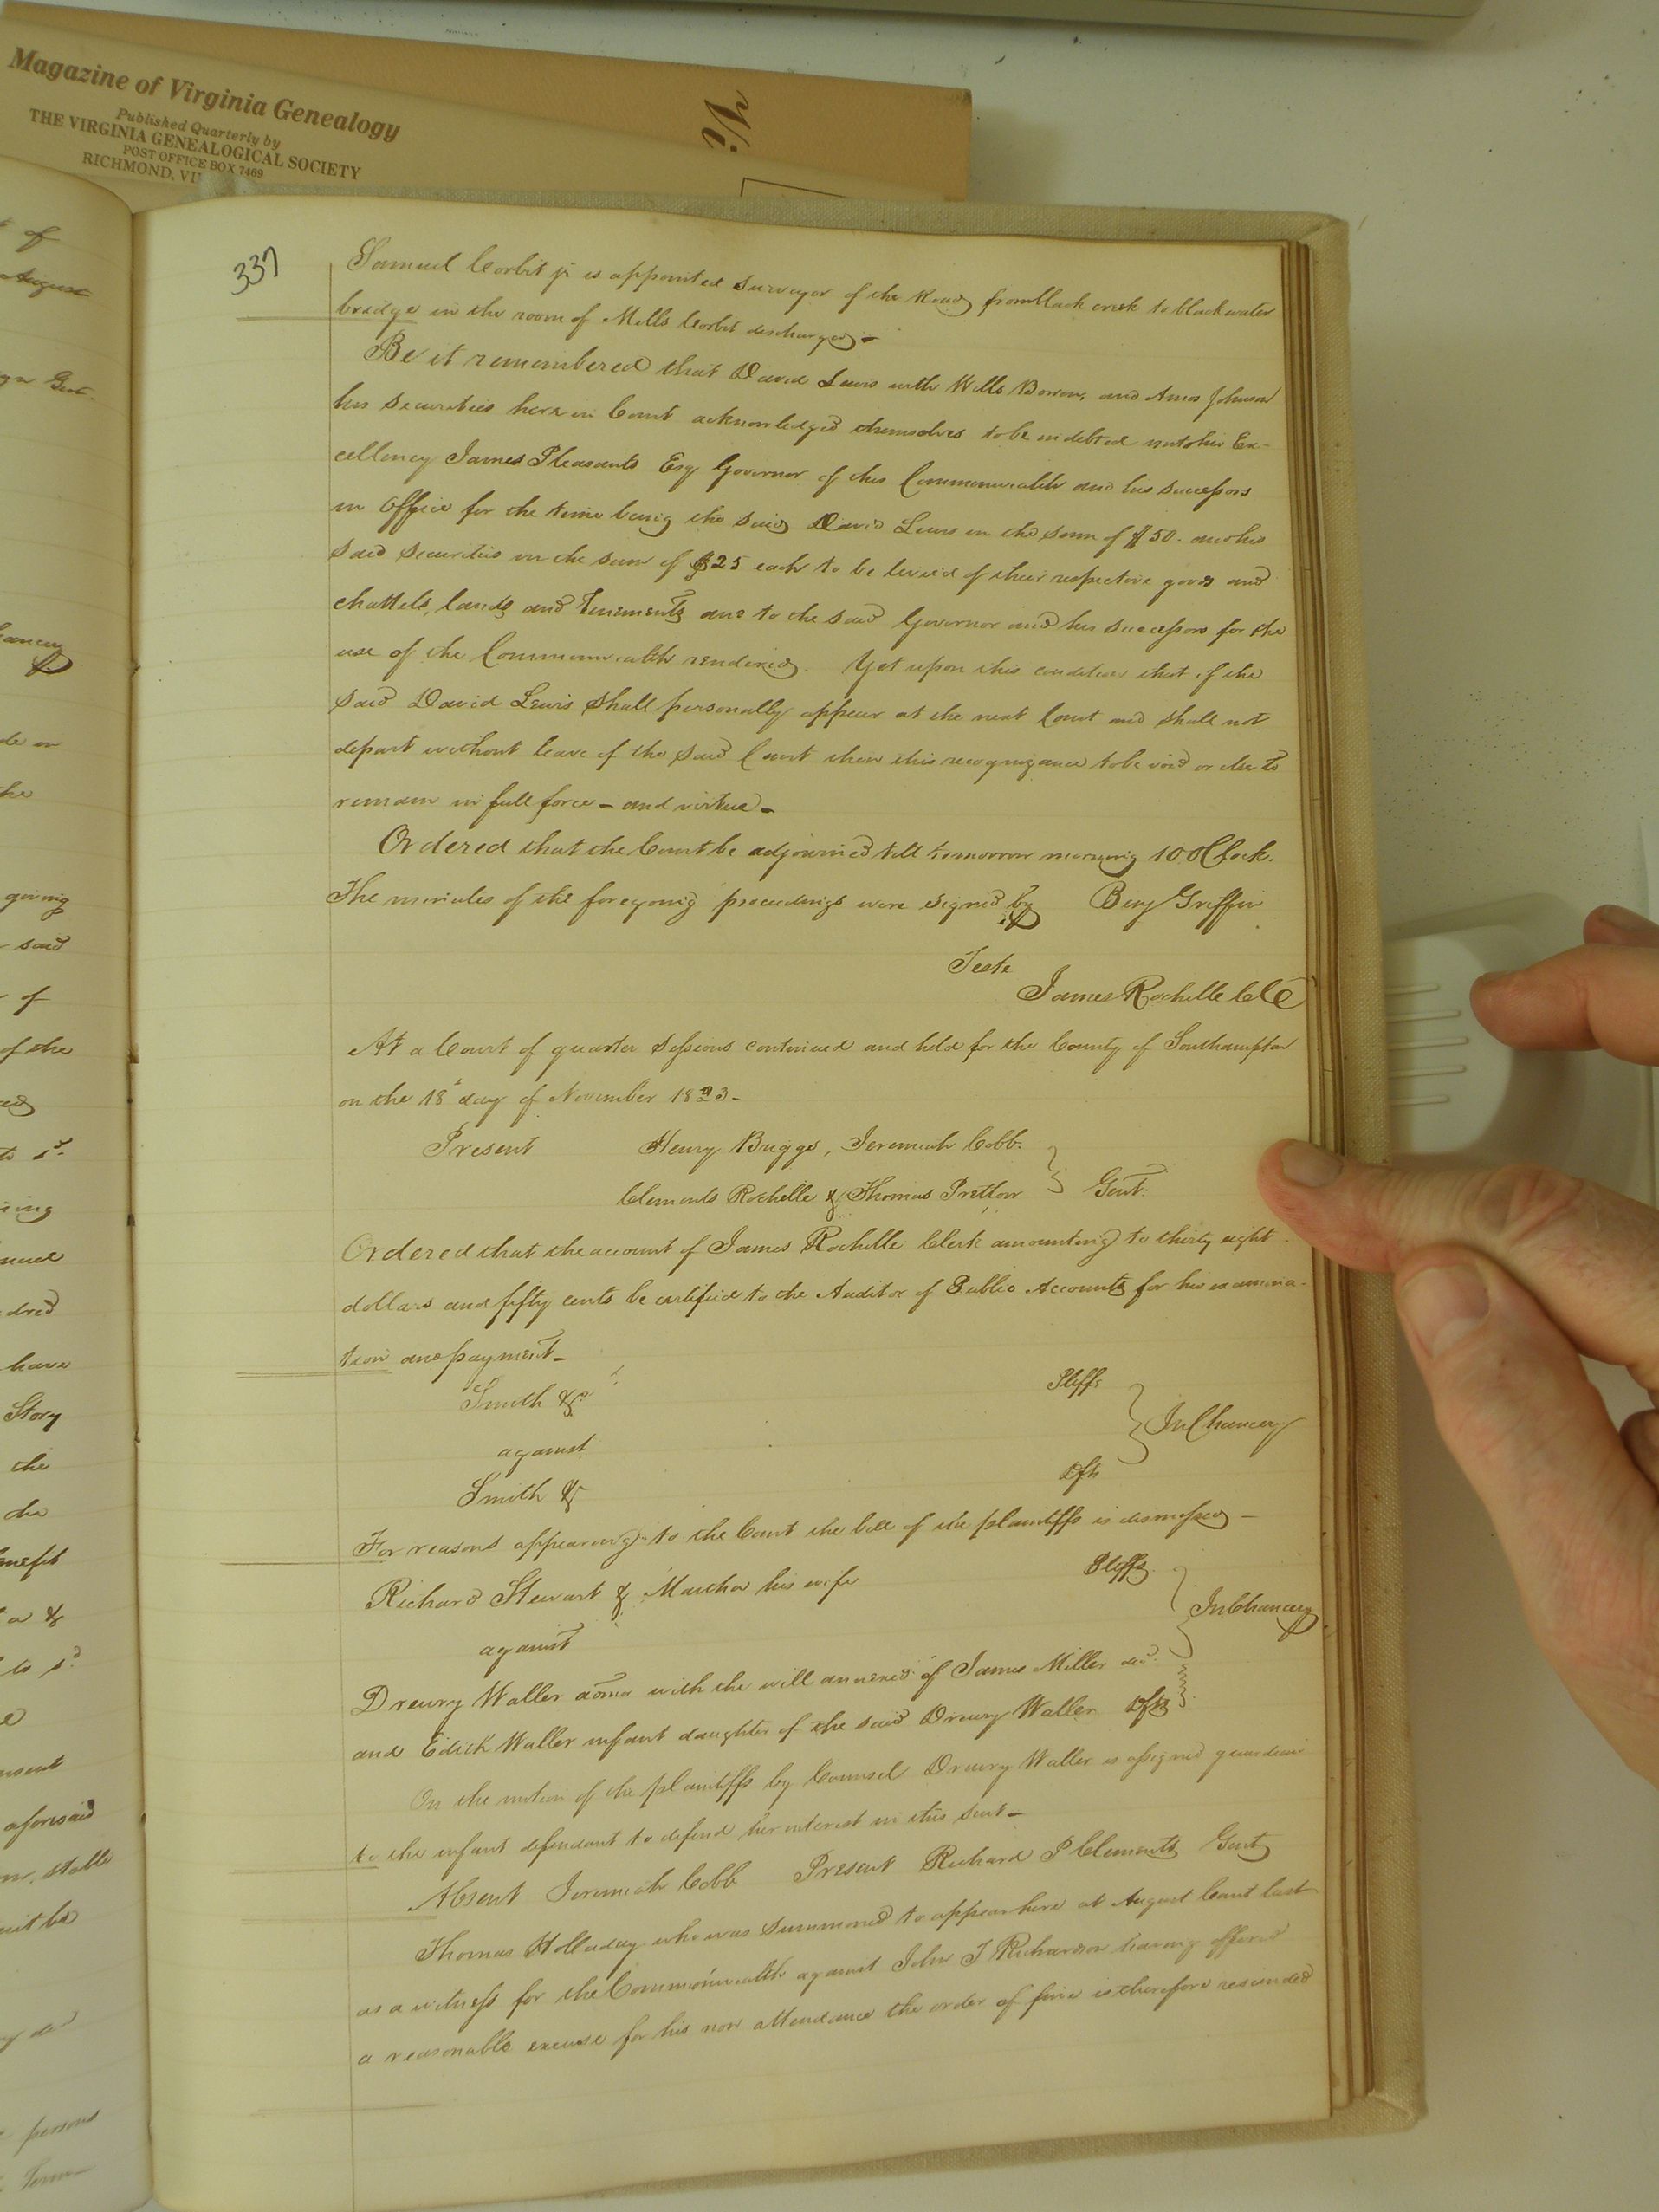 Magazine of Virginia Genealogy
Published Quarterly by
THE VIRGINIA GENEALOGICAL SOCIETY
POST OFFICE BOX 7469
RICHMOND, VI
of
August
Gent.
going
said
of
of the
have
Story
the
the
aforesaid
persons
337
Samuel Corbit jr is appointed Surveyor of the Road from black creek to blackwater
bridge in the room of Mills Corbit discharged -
Be it remembered that David Lewis with Wills Bowen, and Amos Johnson
his Securities here in Court acknowledged themselves to be indebted unto his Ex-
cellency James Pleasants Esq Governor of this Commonwealth and his Successors
in Office for the time being the said David Lewis in the sum of $50. and his
said securities in the sum of $25 each to be levied of their respective goods and
chattels, lands and Tenements and to the said Governor and his successors for the
use of the Commonwealth rendered. Yet upon this condition that if the
said David Lewis shall personally appear at the next Court and shall not
depart without leave of the said Court then this recognizance to be void or else to
remain in full force - and virtue -
Ordered that the Court be adjourned till tomorrow morning 10 OClock.
The minutes of the foregoing proceedings were signed by Benj Griffin
Teste
James Rochelle ClC
At a Court of quarter Sessions continued and held for the County of Southampton
on the 18 day of November 1823 -
Present Henry Briggs, Jeremiah Cobb.
Clements Rochelle & Thomas Pretlow Gent.
Ordered that the account of James Rochelle Clerk amounting to thirty eight
dollars and fifty cents be certified to the Auditor of Public Accounts for his examina-
tion and payment -
Smith &c Pltffs
against In Chancery
Smith & Dfts
For reasons appearing to the Court the bill of the plaintiffs is dismissed -
Richard Stewart & Martha his wife Pltffs
against In Chancery
Drewry Waller admr with the will annexed of James Miller decd.
and Edith Waller infant daughter of the said Drewry Waller Dfts
On the motion of the plaintiffs by Counsel Drewry Waller is assigned guardian
to the infant defendant to defend her interest in this suit -
Absent Jeremiah Cobb Present Richard P Clements Gent
Thomas Holladay who was Summoned to appear here at August Court last
as a witness for the Commonwealth against John T Richardson having offered
a reasonable excuse for his non attendance the order of fine is therefore rescinded